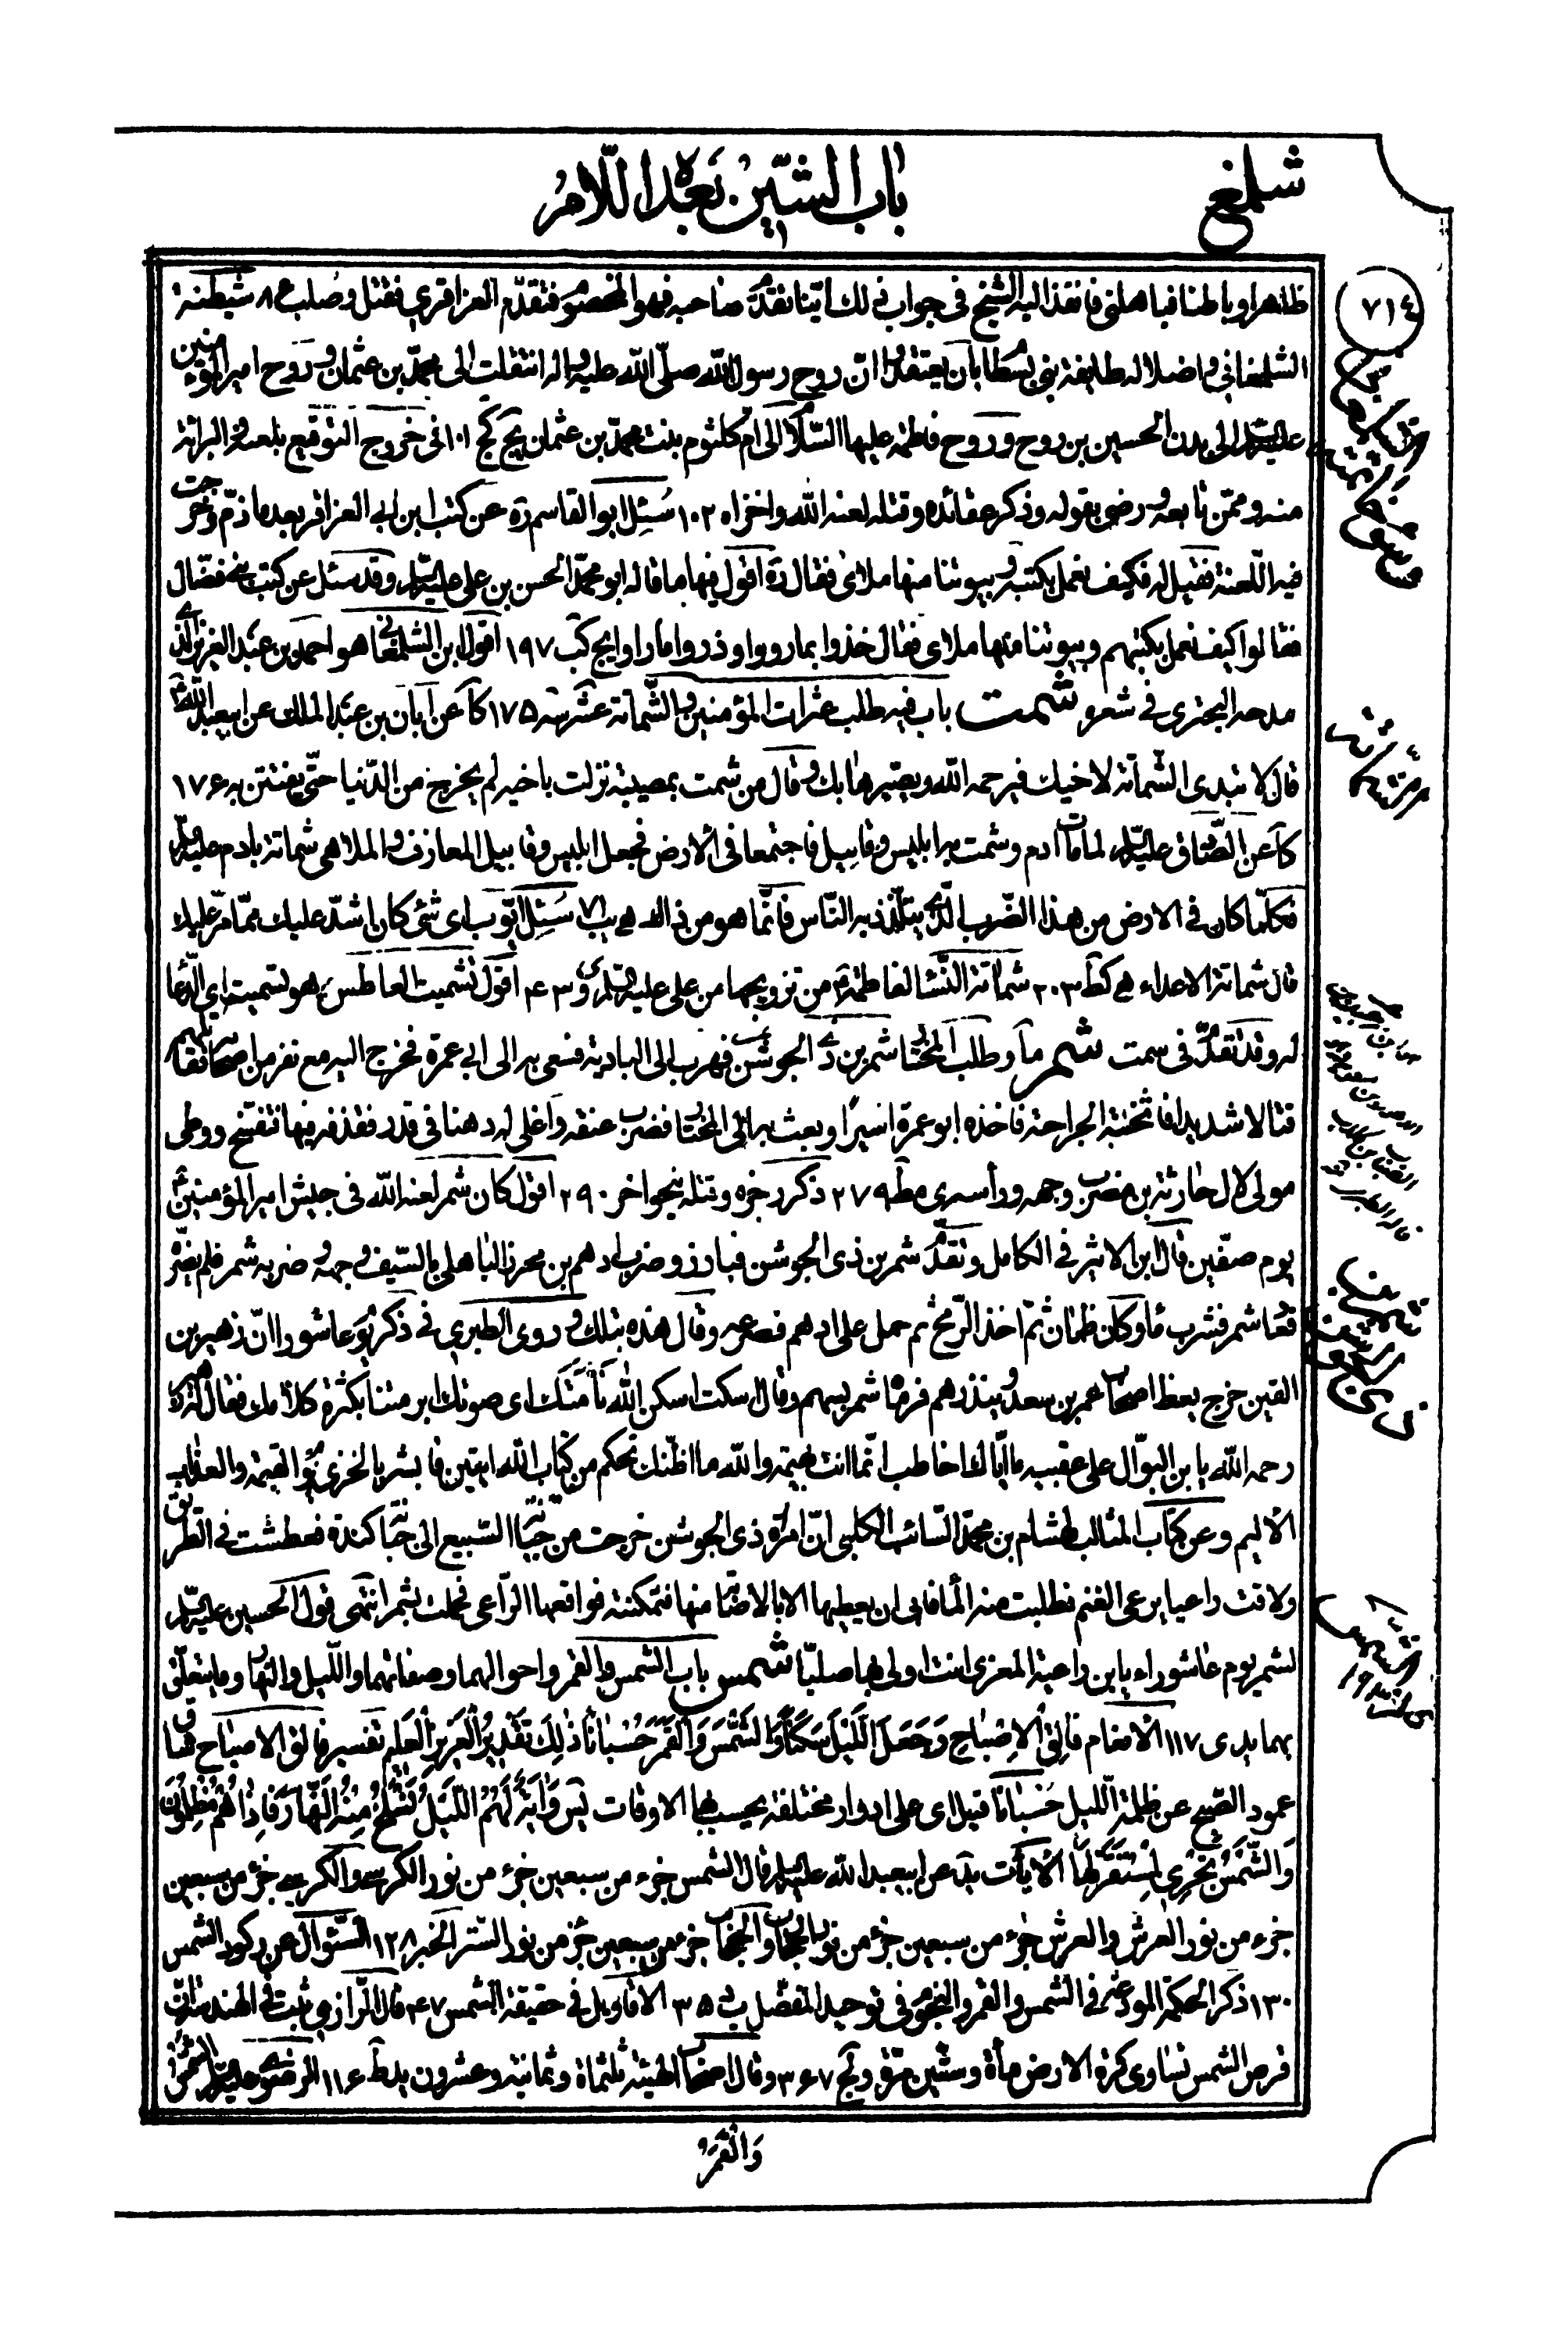 شلمغ
باب الشين بعد اللام
٧١٤
ظاهرا وباطنا فباهلنی فانفذ الیه الشیخ فی جواب ذلك ایّنا تقدّم صاحبه فهو المخصوم فتقدّم العزاقری فقتل وصُلب ٨ شیطنة
الشلمغانی واضلاله طایفة بنی بسطام بان یعتقدوا انّ روح رسول الله صلّی الله علیه واله انتقلت الی محمّد بن عثمان وروح امیر المؤمنین
علیه السلام الی بدن الحسین بن روح وروح فاطمة علیها السّلام الی امّ کلثوم بنت محمّد بن عثمان یج کج ١٠١ فی خروج التوقیع بلعنه والبرائة
منه وممّن تابعه ورضی بقوله وذکر عقائده وقتله لعنه الله واخزاه ١٠٢ سُئل ابو القاسم ره عن کتب ابن ابی العزاقر بعد ما ذمّ وخرجت
فیه اللّعنة فقیل له فکیف نعمل بکتبه وبیوتنا منها ملای فقال ره اقول فیها ما قاله ابو محمّد الحسن بن علی علیه السلام وقد سئل عن کتب بنی فضّال
فقالوا کیف نعمل بکتبهم وبیوتنا منها ملای فقال خذوا بما رووا وذروا ما راوا یج کب ١٩٧ اقول ابن الشلمغانی هو احمد بن عبد العزیز الذی
مدحه البحتری فی شعره شمت باب فیه طلب عثرات المؤمنین والشّماتة عشر سه ١٧٥ کا عن ابان بن عبد الملك عن ابیعبد الله
قال لا تبدی الشّماتة لاخیك فیرحمه الله ویصیرها بك وقال من شمت بمصیبة نزلت باخیه لم یخرج من الدّنیا حتّی یفتتن به ١٧۶
کا عن الصّادق علیه السلام لما مات ادم وشمت به ابلیس وقابیل فاجتمعا فی الارض فجعل ابلیس وقابیل المعازف والملاهی شماتة بادم علیه السلام
فکلّما کان فی الارض من هذا الضّرب الّذی یتلذّذ به النّاس فانّما هو من ذاك ه یب ٧١ سُئل ایّوب ای شئ کان اشدّ علیك ممّا مرّ علیك
قال شماتة الاعداء ه کط ٢٠٣ شماتة النّساء لفاطمة من تزویجها من علی علیه السلام ی و ۴٣ اقول تشمیت العاطس هو تسمیت ای الدّعا
له وقد تقدّم فی سمت شمر ما وطلب المختار شمر بن ذی الجوشن فهرب الی البادیة فسعی به الی ابی عمرة فخرج الیه مع نفر من اصحابه فقاتلهم
قتالا شدیدا فاثخنته الجراحة فاخذه ابو عمرة اسیرًا وبعث به الی المختار فضرب عنقه واغلی له دهنا فی قدر فقذفه فیها فتفسّخ ووطی
مولی لال حارثة بن مضرب وجهه ورأسه ی مط ٢٧٩ ذکر رجزه وقتله ینحو اخر ٢٩٠ اقول کان شمر لعنه الله فی جیش امیر المؤمنین
یوم صفّین قال ابن الاثیر فی الکامل وتقدّم شمر بن ذی الجوشن فبارز وضرب ادهم بن محرز الباهلی بالسّیف وجهه وضربه شمر فلم یضرّه
فعاد شمر فشرب ماء وکان ظمان ثمّ اخذ الرّمح ثم حمل علی ادهم فصرعه وقال هذه بتلك وروی الطبری فی ذکر یوم عاشورا انّ زهیر بن
القین خرج یعظ اصحاب عمر بن سعد وینذرهم فرماه شمر بسهم وقال اسکت اسکن الله نأمتك ای صوتك ابرمتنا بکثرة کلامك فقال له زهیر
رحمه الله یا بن البوّال علی عقبیه ما ایّاك اخاطب انّما انت بهیمة والله ما اظنّك تحکم من کتاب الله ایتین فابشر بالخزی یوم القیمة والعذاب
الالیم وعن کتاب المثالب لهشام بن محمّد السّائب الکلبی انّ امراة ذی الجوشن خرجت من جبّانة السّبیع الی جبّانة کندة فعطشت فی الطریق
ولاقت راعیا یرعی الغنم فطلبت منه الماء فابی ان یعطیها الا بالاصابة منها فتمکنته فواقعها الرّاعی فحملت بشمر انتهی قول الحسین علیه السلام
لشمر یوم عاشوراء یا بن راعیة المعزی انت اولی بها صلیّا شمس باب الشمس والقمر واحوالهما وصفاتهما واللّیل والنهار وما یتعلّق
بهما ید ی ١١٧ الانعام فَالِقُ الْاِصْبَاحِ وَجَعَلَ اللَّیْلَ سَکَنًا وَالشَّمْسَ وَالْقَمَرَ حُسْبَانًا ذٰلِكَ تَقْدِیرُ الْعَزِیزِ الْعَلِیمِ تفسیر فالق الاصباح شاق
عمود الصّبح عن ظلمة اللّیل حُسْبَانًا قیل ای علی ادوار مختلفة یحسب بها الاوقات یس وَاٰیَةٌ لَهُمُ اللَّیْلُ نَسْلَخُ مِنْهُ النَّهَارَ فَاِذَاهُمْ مُظْلِمُونَ
وَالشَّمْسُ تَجْرِی لِمُسْتَقَرٍّ لَهَا الایات ید عن ابیعبد الله علیه السلام قال الشمس جزء من سبعین جزء من نور الکرسی والکرسی جزء من سبعین
جزء من نور العرش والعرش جزء من سبعین جزء من نور الحجاب والحجاب جزء من سبعین جزء من نور السّتر الخبر ١٢٨ السّئوال عن رکود الشمس
١٣٠ ذکر الحکمة المودعة فی الشمس والقمر والنجوم فی توحید المفضّل ب د ٣۵ الاقاویل فی حقیقة الشمس ۴٧ قال الرّازی ثبت فی الهندسة انّ
قرص الشمس تساوی کرة الارض مأة وستّین مرّة وکج ٣۶٧ وقال اصحاب الهیئة ثلثماة وثمانیة وعشرون ید ط ١١۶ الرضوی علیه السلام
وَالْقَمَرُ